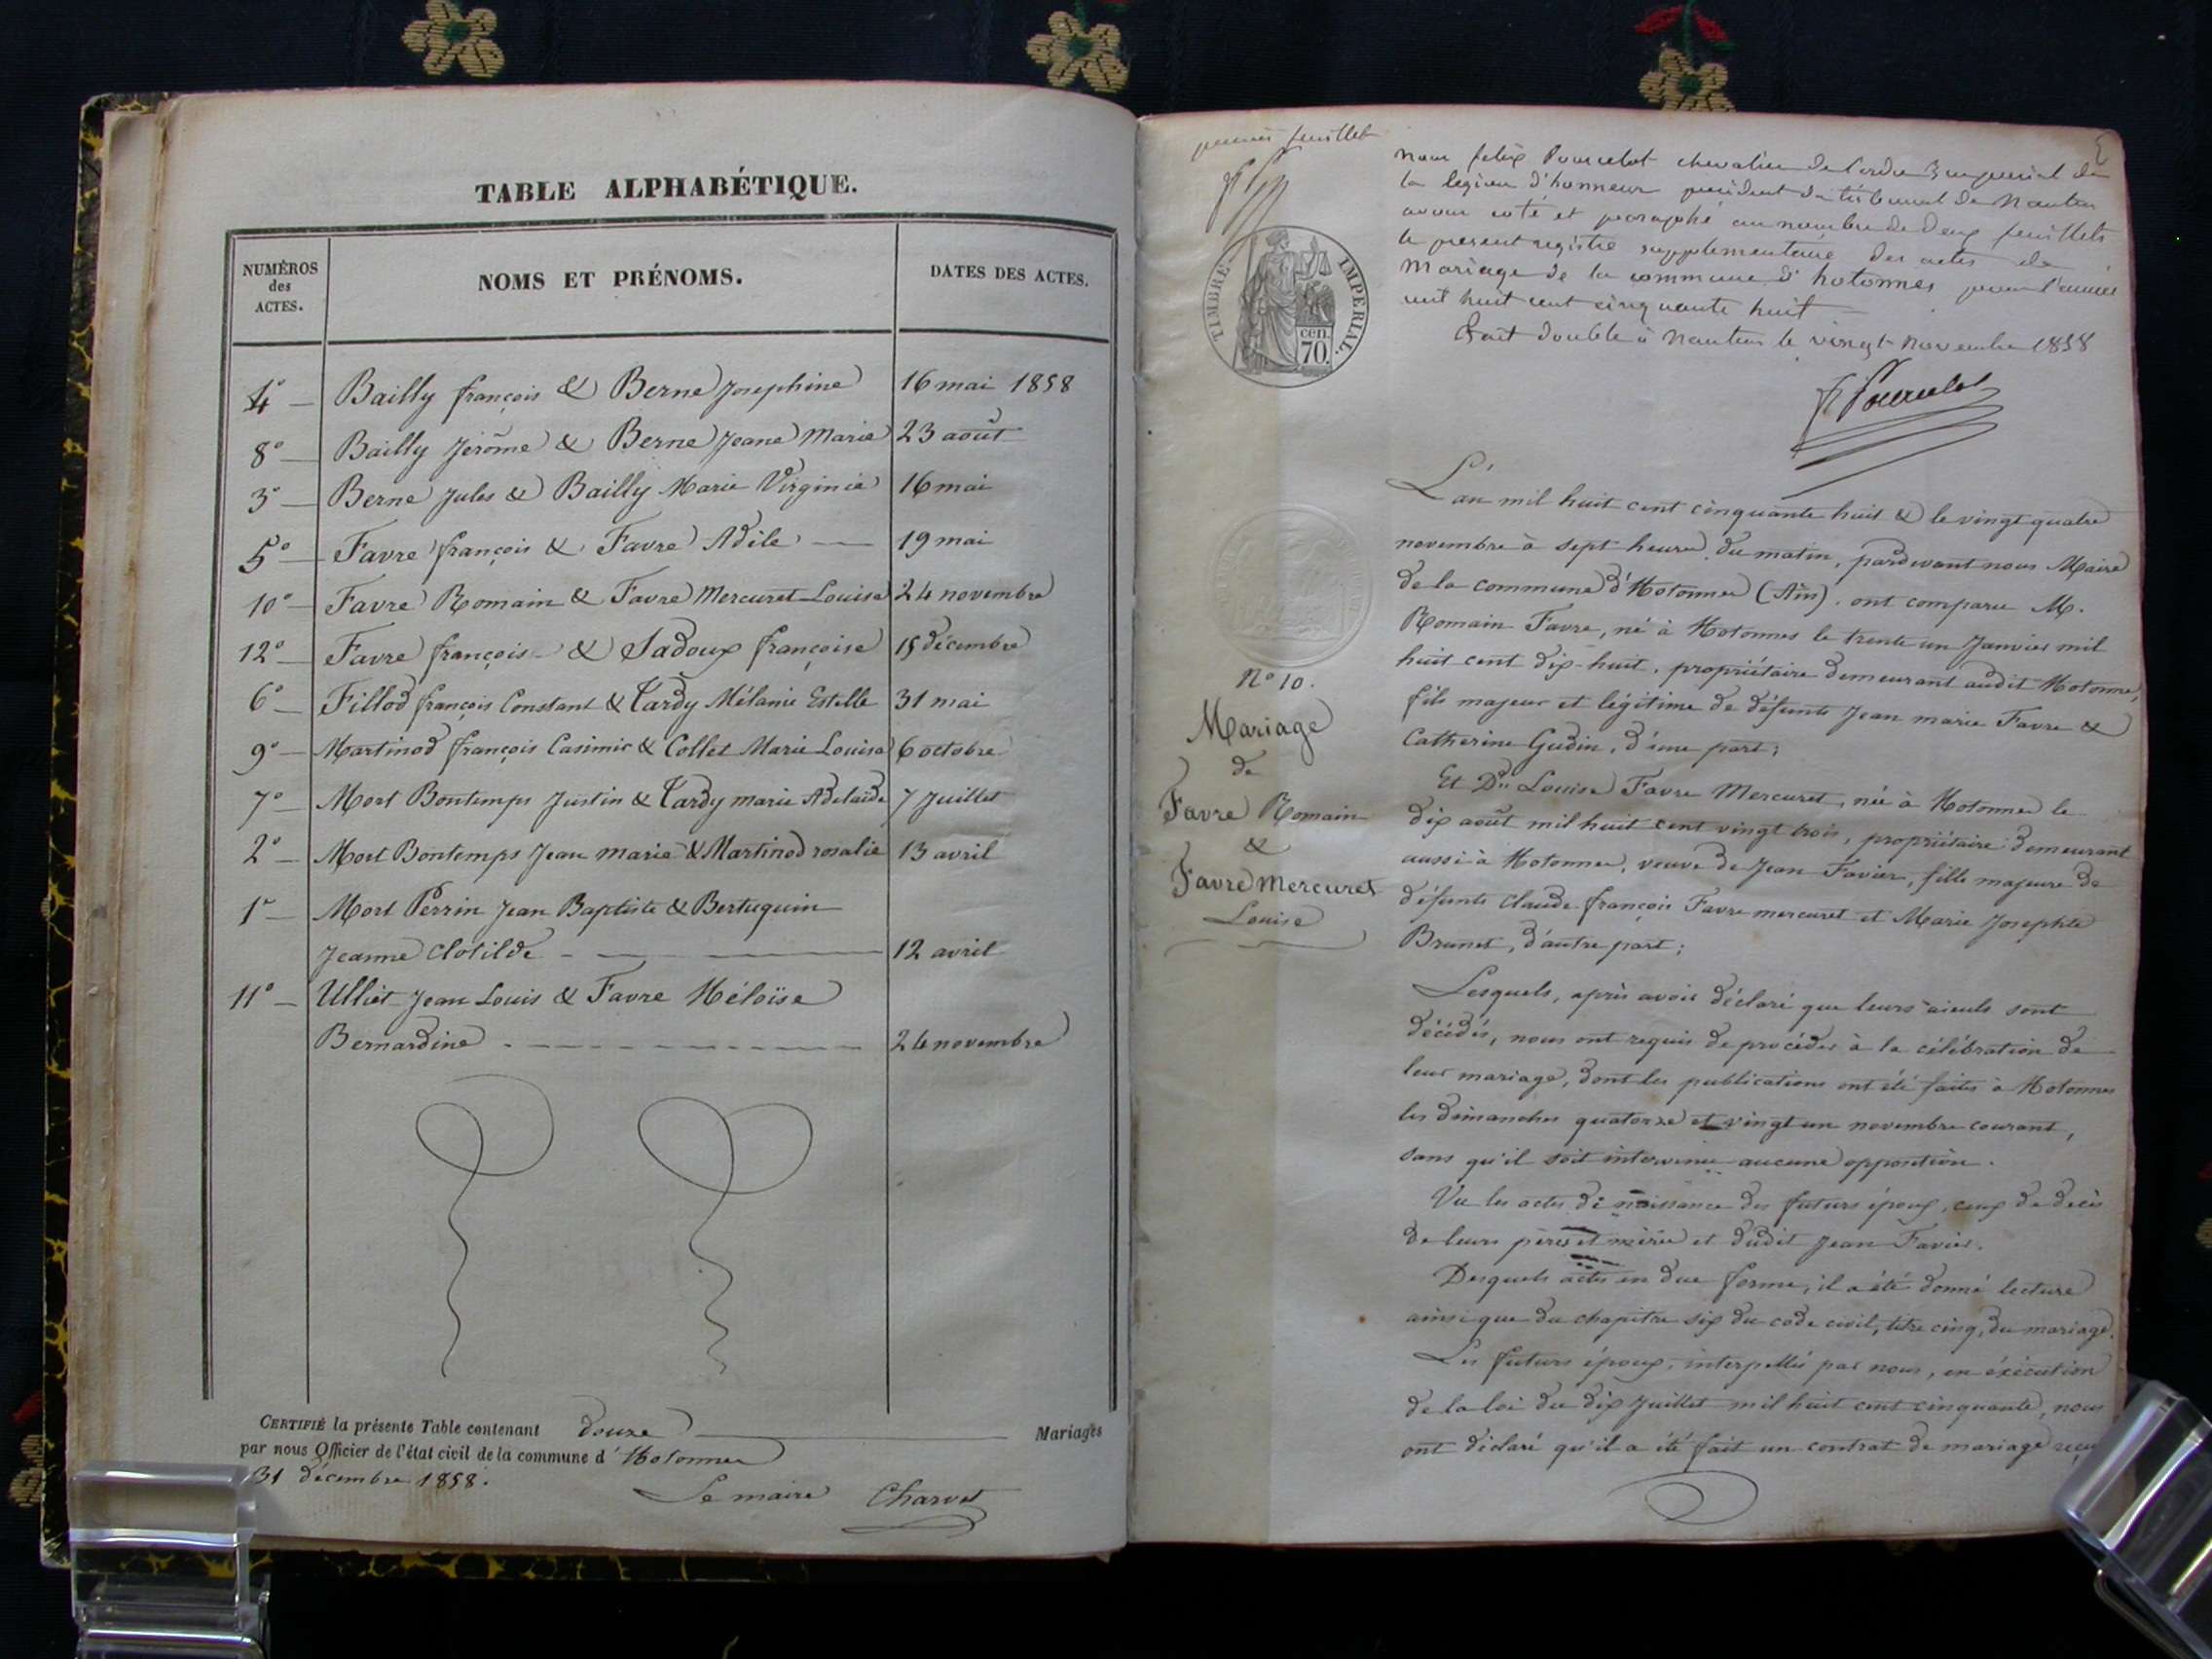 TABLE ALPHABÉTIQUE.
NUMÉROS
des
ACTES.
NOMS ET PRÉNOMS.
DATES DES ACTES.
4° — Bailly françois & Berne Josephine 16 mai 1858
8° — Bailly Jérôme & Berne Jeane Marie 23 août
3° — Berne Jules & Bailly Marie Virginie 16 mai
5° — Favre françois & Favre Adile — 19 mai
10° — Favre Romain & Favre Mercuret Louise 24 novembre
12° — Favre françois & Sadoux françoise 15 décembre
6° — Fillod françois Constant & Tardy Mélanie Estelle 31 mai
9° — Martinod françois Casimir & Collet Marie Louise 6 octobre
7° — Mort Bontemps Justin & Tardy marie Adelaïde 7 Juillet
2° — Mort Bontemps Jean marie & Martinod rosalie 13 avril
1r — Mort Perrin Jean Baptiste & Bertuguin
Jeanne Clotilde — 12 avril
11° — Ulliet Jean Louis & Favre Héloïse
Bernardine - - - - 24 novembre
CERTIFIÉ la présente Table contenant douze Mariages
par nous Officier de l'état civil de la commune d'Hotonnes
31 décembre 1858.
Le maire Charvet
premier feuillet
nous felix Pourcelot chevalier de l'ordre Imperial de
la legion d'honneur président du tribunal de Nantua
avons coté et paraphé au nombre de deux feuillets
le present registre supplementaire des actes de
mariage de la commune d'hotonnes pour l'année
mil huit cent cinquante huit —
Fait double à Nantua le vingt novembre 1858
F Pourcelot
TIMBRE IMPERIAL.
70. cen.
N° 10.
Mariage
de
Favre Romain
&
Favre Mercuret
Louise
L'an mil huit cent cinquante huit & le vingt quatre
novembre à sept heures du matin, pardevant nous Maire
de la commune d'Hotonnes (Ain), ont comparu M.
Romain Favre, né à Hotonnes le trente un Janvier mil
huit cent dix-huit, propriétaire demeurant audit Hotonnes,
fils majeur et légitime de défunts Jean marie Favre &
Catherine Gudin, d'une part;
Et Dlle Louise Favre Mercuret, née à Hotonnes le
dix août mil huit cent vingt trois, propriétaire demeurant
aussi à Hotonnes, veuve de Jean Favier, fille majeure de
défunts Claude françois Favre mercuret et Marie Josephte
Brunet, d'autre part;
Lesquels, après avoir déclaré que leurs aieuls sont
décédés, nous ont requis de procéder à la célébration de
leur mariage, dont les publications ont été faites à Hotonnes
les dimanches quatorze et vingt un novembre courant,
sans qu'il soit intervenu aucune opposition.
Vu les actes de naissance des futurs époux, ceux de décès
de leurs pères et mères et dudit Jean Favier.
Desquels actes en due forme, il a été donné lecture
ainsi que du chapitre six du code civil, titre cinq, du mariage.
Les futurs époux, interpellés par nous, en éxécution
de la loi du dix Juillet mil huit cent cinquante, nous
ont déclaré qu'il a été fait un contrat de mariage reçu